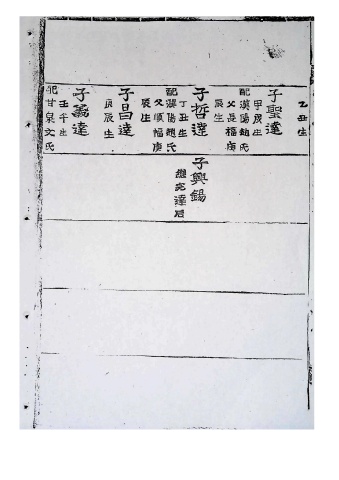 乙丑生
子聖達
甲辰生
配漢陽趙氏
父長福庚
辰生
子哲達
丁丑生
配漢陽趙氏
父順福庚
辰生
子昌達
庚辰生
子萬達
壬午生
配甘泉文氏
子興錫
達后